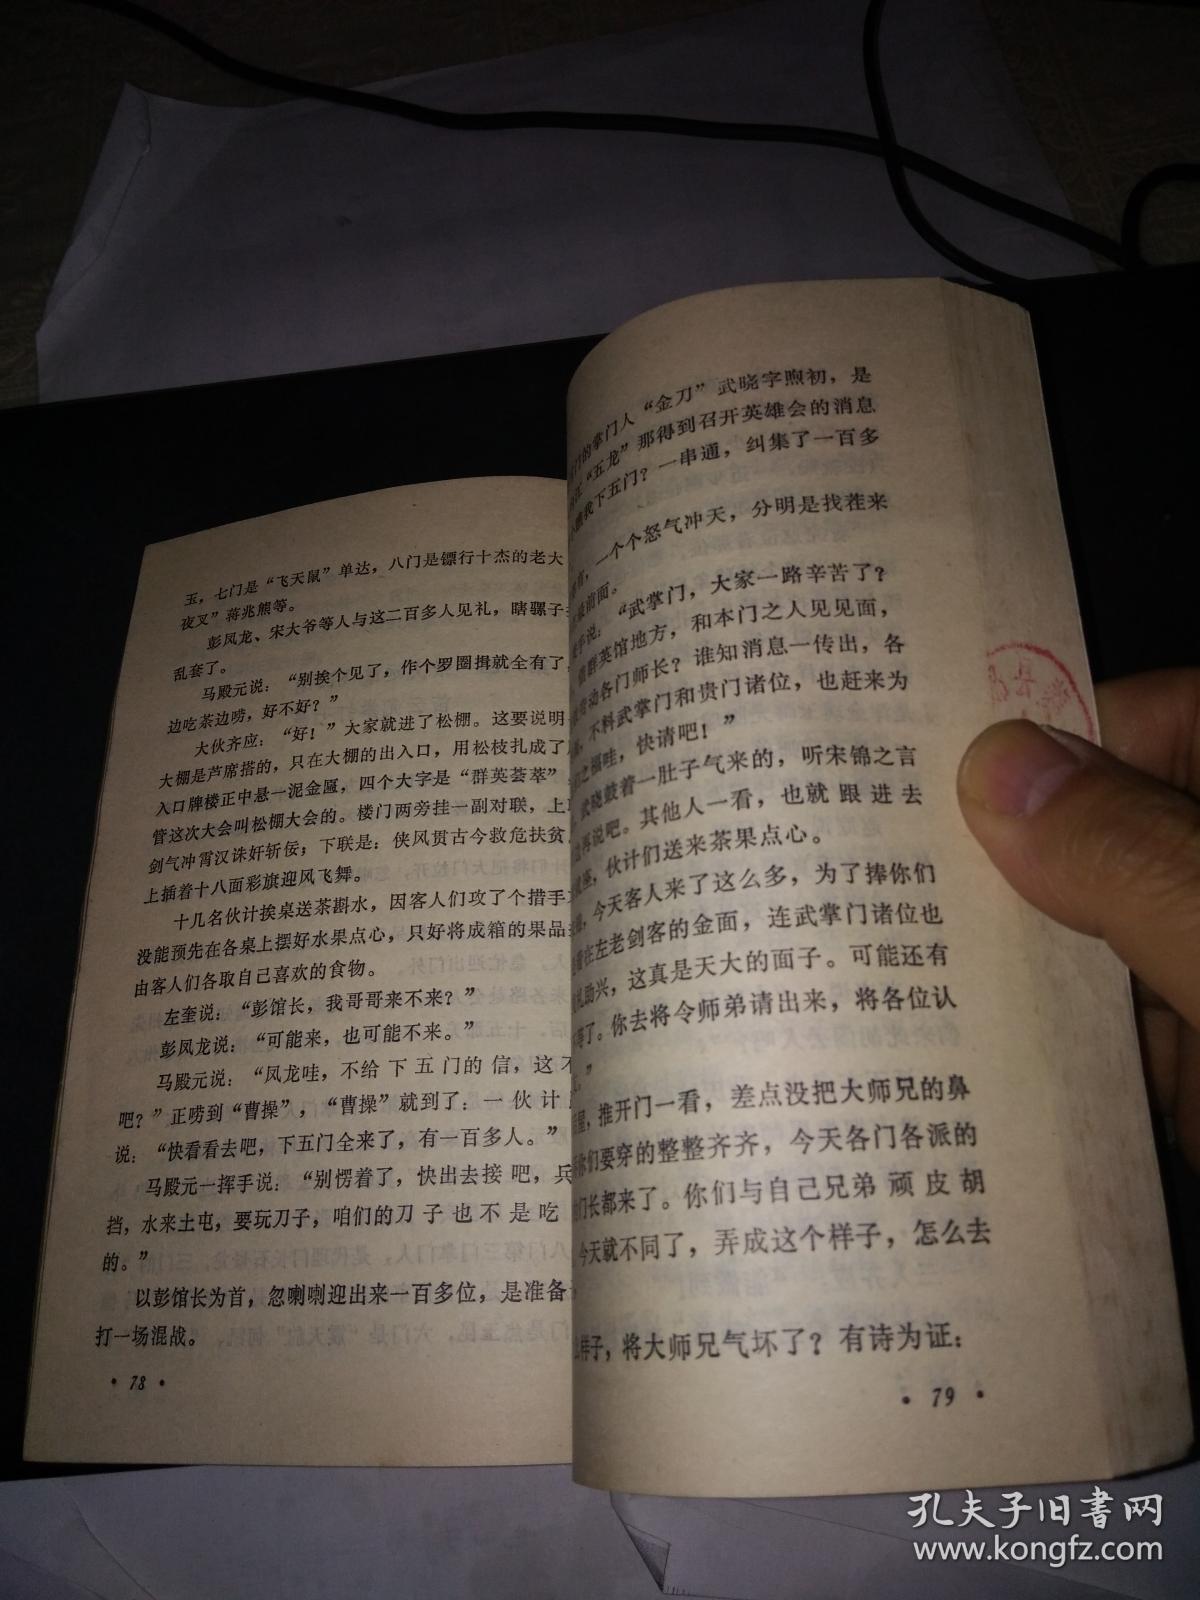 玉，七门是“飞天鼠”单达，八门是镖行十杰的老大
夜叉”蒋兆熊等。
彭凤龙、宋大爷等人与这二百多人见礼，瞎骡子
乱套了。
马殿元说：“别挨个见了，作个罗圈揖就全有了
边吃茶边唠，好不好？”
大伙齐应：“好！”大家就进了松棚。这要说明
大棚是芦席搭的，只在大棚的出入口，用松枝扎成了
入口牌楼正中悬一泥金匾，四个大字是“群英荟萃”
管这次大会叫松棚大会的。楼门两旁挂一副对联，上
剑气冲霄汉诛奸斩佞；下联是：侠风贯古今救危扶贫
上插着十八面彩旗迎风飞舞。
十几名伙计挨桌送茶斟水，因客人们攻了个措手
没能预先在各桌上摆好水果点心，只好将成箱的果品
由客人们各取自己喜欢的食物。
左奎说：“彭馆长，我哥哥来不来？”
彭凤龙说：“可能来，也可能不来。”
马殿元说：“凤龙哇，不给下五门的信，这不
吧？”正唠到“曹操”，“曹操”就到了：一伙计
说：“快看看去吧，下五门全来了，有一百多人。”
马殿元一挥手说：“别愣着了，快出去接吧，兵
挡，水来土屯，要玩刀子，咱们的刀子也不是吃
的。”
以彭馆长为首，忽喇喇迎出来一百多位，是准备
打一场混战。
• 78 •
门的掌门人“金刀”武晓字煦初，是
“五龙”那得到召开英雄会的消息
我下五门？一串通，纠集了一百多
，一个个怒气冲天，分明是找茬来
最前面。
手说：“武掌门，大家一路辛苦了？
群英馆地方，和本门之人见见面，
动各门师长？谁知消息一传出，各
，不料武掌门和贵门诸位，也赶来为
之福哇，快请吧！”
武晓鼓着一肚子气来的，听宋锦之言
再说吧。其他人一看，也就跟进去
座，伙计们送来茶果点心。
，今天客人来了这么多，为了捧你们
在左老剑客的金面，连武掌门诸位也
礼助兴，这真是天大的面子。可能还有
等了。你去将令师弟请出来，将各位认
。”
屋，推开门一看，差点没把大师兄的鼻
你们要穿的整整齐齐，今天各门各派的
门长都来了。你们与自己兄弟顽皮胡
今天就不同了，弄成这个样子，怎么去
样子，将大师兄气坏了？有诗为证：
• 79 •
孔夫子旧书网
www.kongfz.com